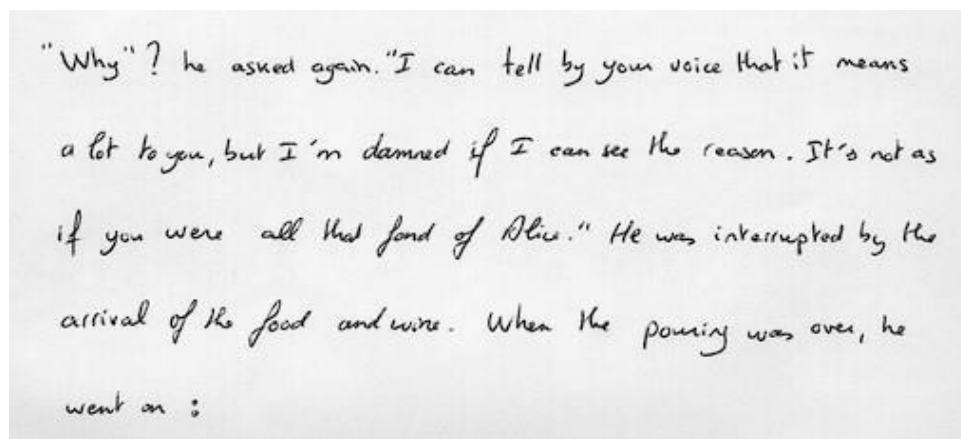 "Why"? he asked again. "I can tell by your voice that it means
a lot to you, but I'm damned if I can see the reason. It's not as
if you were all that fond of Alice." He was interrupted by the
arrival of the food and wine. When the pouring was over, he
went on :